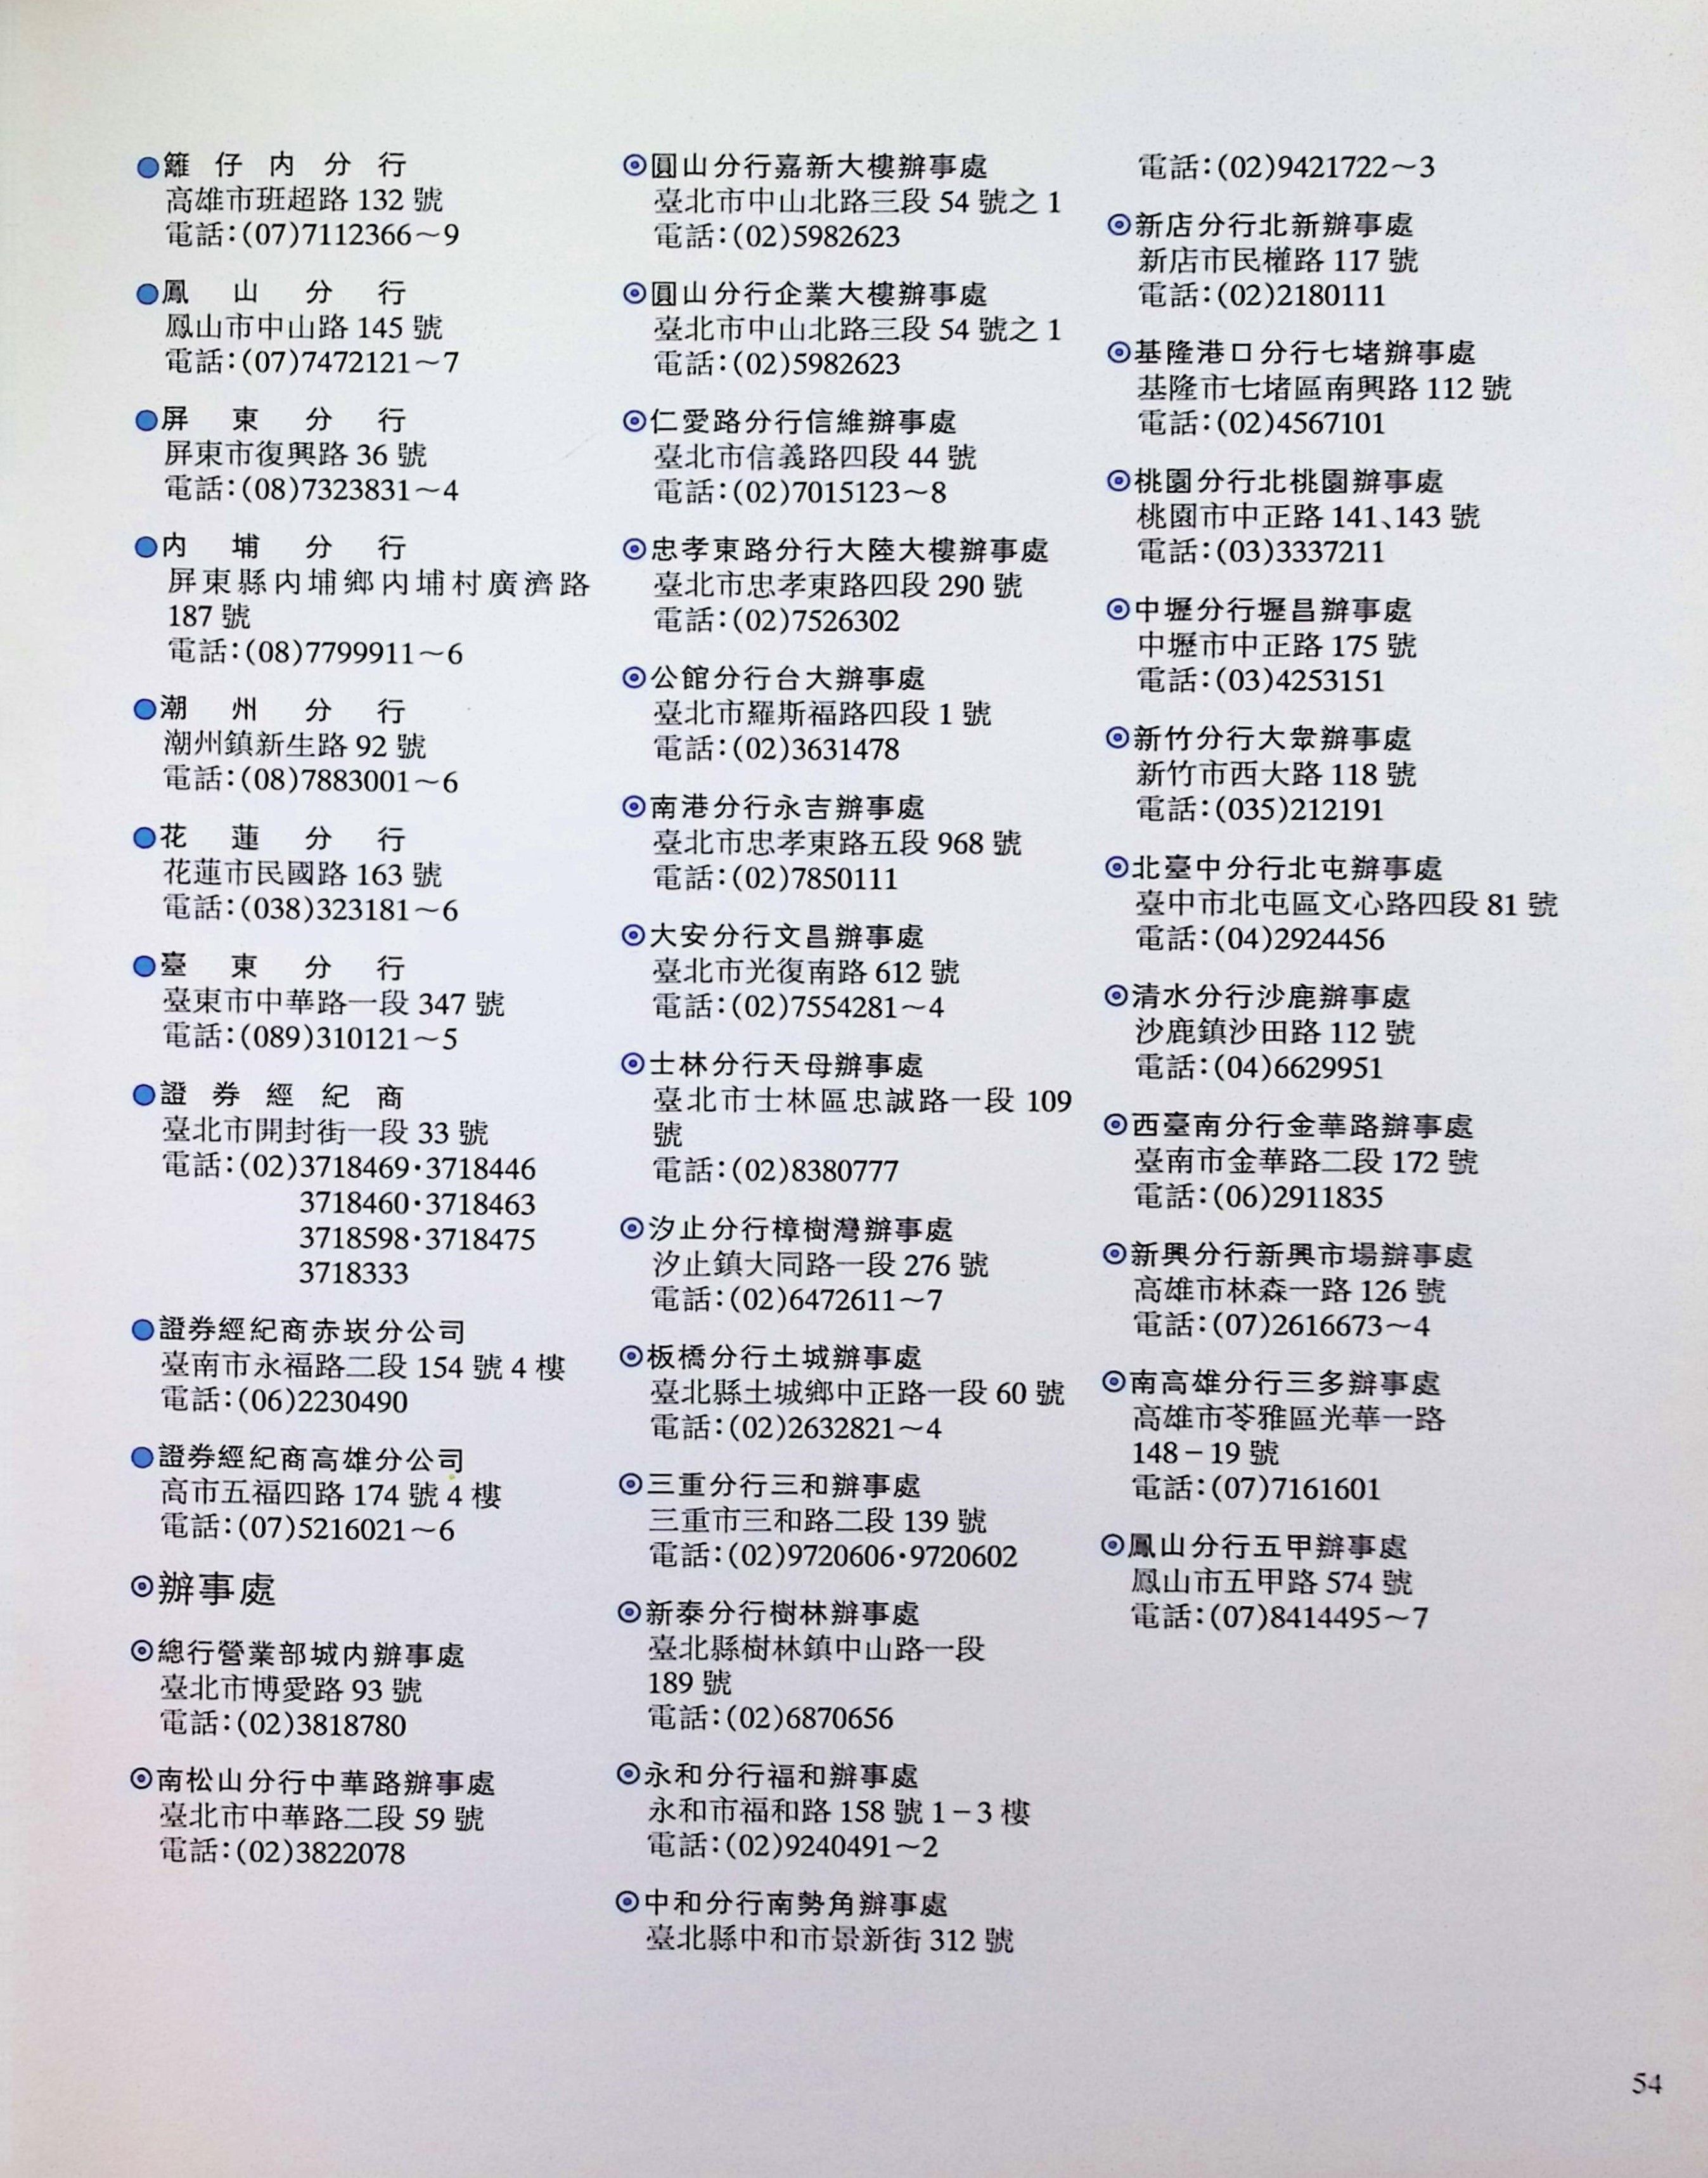 ●籬仔内分行
高雄市班超路 132 號
電話：(07)7112366～9
●鳳山分行
鳳山市中山路 145 號
電話：(07)7472121～7
●屏東分行
屏東市復興路 36 號
電話：(08)7323831～4
●内埔分行
屏東縣内埔鄉内埔村廣濟路
187 號
電話：(08)7799911～6
●潮州分行
潮州鎮新生路 92 號
電話：(08)7883001～6
●花蓮分行
花蓮市民國路 163 號
電話：(038)323181～6
●臺東分行
臺東市中華路一段 347 號
電話：(089)310121～5
●證券經紀商
臺北市開封街一段 33 號
電話：(02)3718469·3718446
3718460·3718463
3718598·3718475
3718333
●證券經紀商赤崁分公司
臺南市永福路二段 154 號 4 樓
電話：(06)2230490
●證券經紀商高雄分公司
高市五福四路 174 號 4 樓
電話：(07)5216021～6
◎辦事處
◎總行營業部城内辦事處
臺北市博愛路 93 號
電話：(02)3818780
◎南松山分行中華路辦事處
臺北市中華路二段 59 號
電話：(02)3822078
◎圓山分行嘉新大樓辦事處
臺北市中山北路三段 54 號之 1
電話：(02)5982623
◎圓山分行企業大樓辦事處
臺北市中山北路三段 54 號之 1
電話：(02)5982623
◎仁愛路分行信維辦事處
臺北市信義路四段 44 號
電話：(02)7015123～8
◎忠孝東路分行大陸大樓辦事處
臺北市忠孝東路四段 290 號
電話：(02)7526302
◎公館分行台大辦事處
臺北市羅斯福路四段 1 號
電話：(02)3631478
◎南港分行永吉辦事處
臺北市忠孝東路五段 968 號
電話：(02)7850111
◎大安分行文昌辦事處
臺北市光復南路 612 號
電話：(02)7554281～4
◎士林分行天母辦事處
臺北市士林區忠誠路一段 109
號
電話：(02)8380777
◎汐止分行樟樹灣辦事處
汐止鎮大同路一段 276 號
電話：(02)6472611～7
◎板橋分行土城辦事處
臺北縣土城鄉中正路一段 60 號
電話：(02)2632821～4
◎三重分行三和辦事處
三重市三和路二段 139 號
電話：(02)9720606·9720602
◎新泰分行樹林辦事處
臺北縣樹林鎮中山路一段
189 號
電話：(02)6870656
◎永和分行福和辦事處
永和市福和路 158 號 1－3 樓
電話：(02)9240491～2
◎中和分行南勢角辦事處
臺北縣中和市景新街 312 號
電話：(02)9421722～3
◎新店分行北新辦事處
新店市民權路 117 號
電話：(02)2180111
◎基隆港口分行七堵辦事處
基隆市七堵區南興路 112 號
電話：(02)4567101
◎桃園分行北桃園辦事處
桃園市中正路 141、143 號
電話：(03)3337211
◎中壢分行壢昌辦事處
中壢市中正路 175 號
電話：(03)4253151
◎新竹分行大眾辦事處
新竹市西大路 118 號
電話：(035)212191
◎北臺中分行北屯辦事處
臺中市北屯區文心路四段 81 號
電話：(04)2924456
◎清水分行沙鹿辦事處
沙鹿鎮沙田路 112 號
電話：(04)6629951
◎西臺南分行金華路辦事處
臺南市金華路二段 172 號
電話：(06)2911835
◎新興分行新興市場辦事處
高雄市林森一路 126 號
電話：(07)2616673～4
◎南高雄分行三多辦事處
高雄市苓雅區光華一路
148－19 號
電話：(07)7161601
◎鳳山分行五甲辦事處
鳳山市五甲路 574 號
電話：(07)8414495～7
54